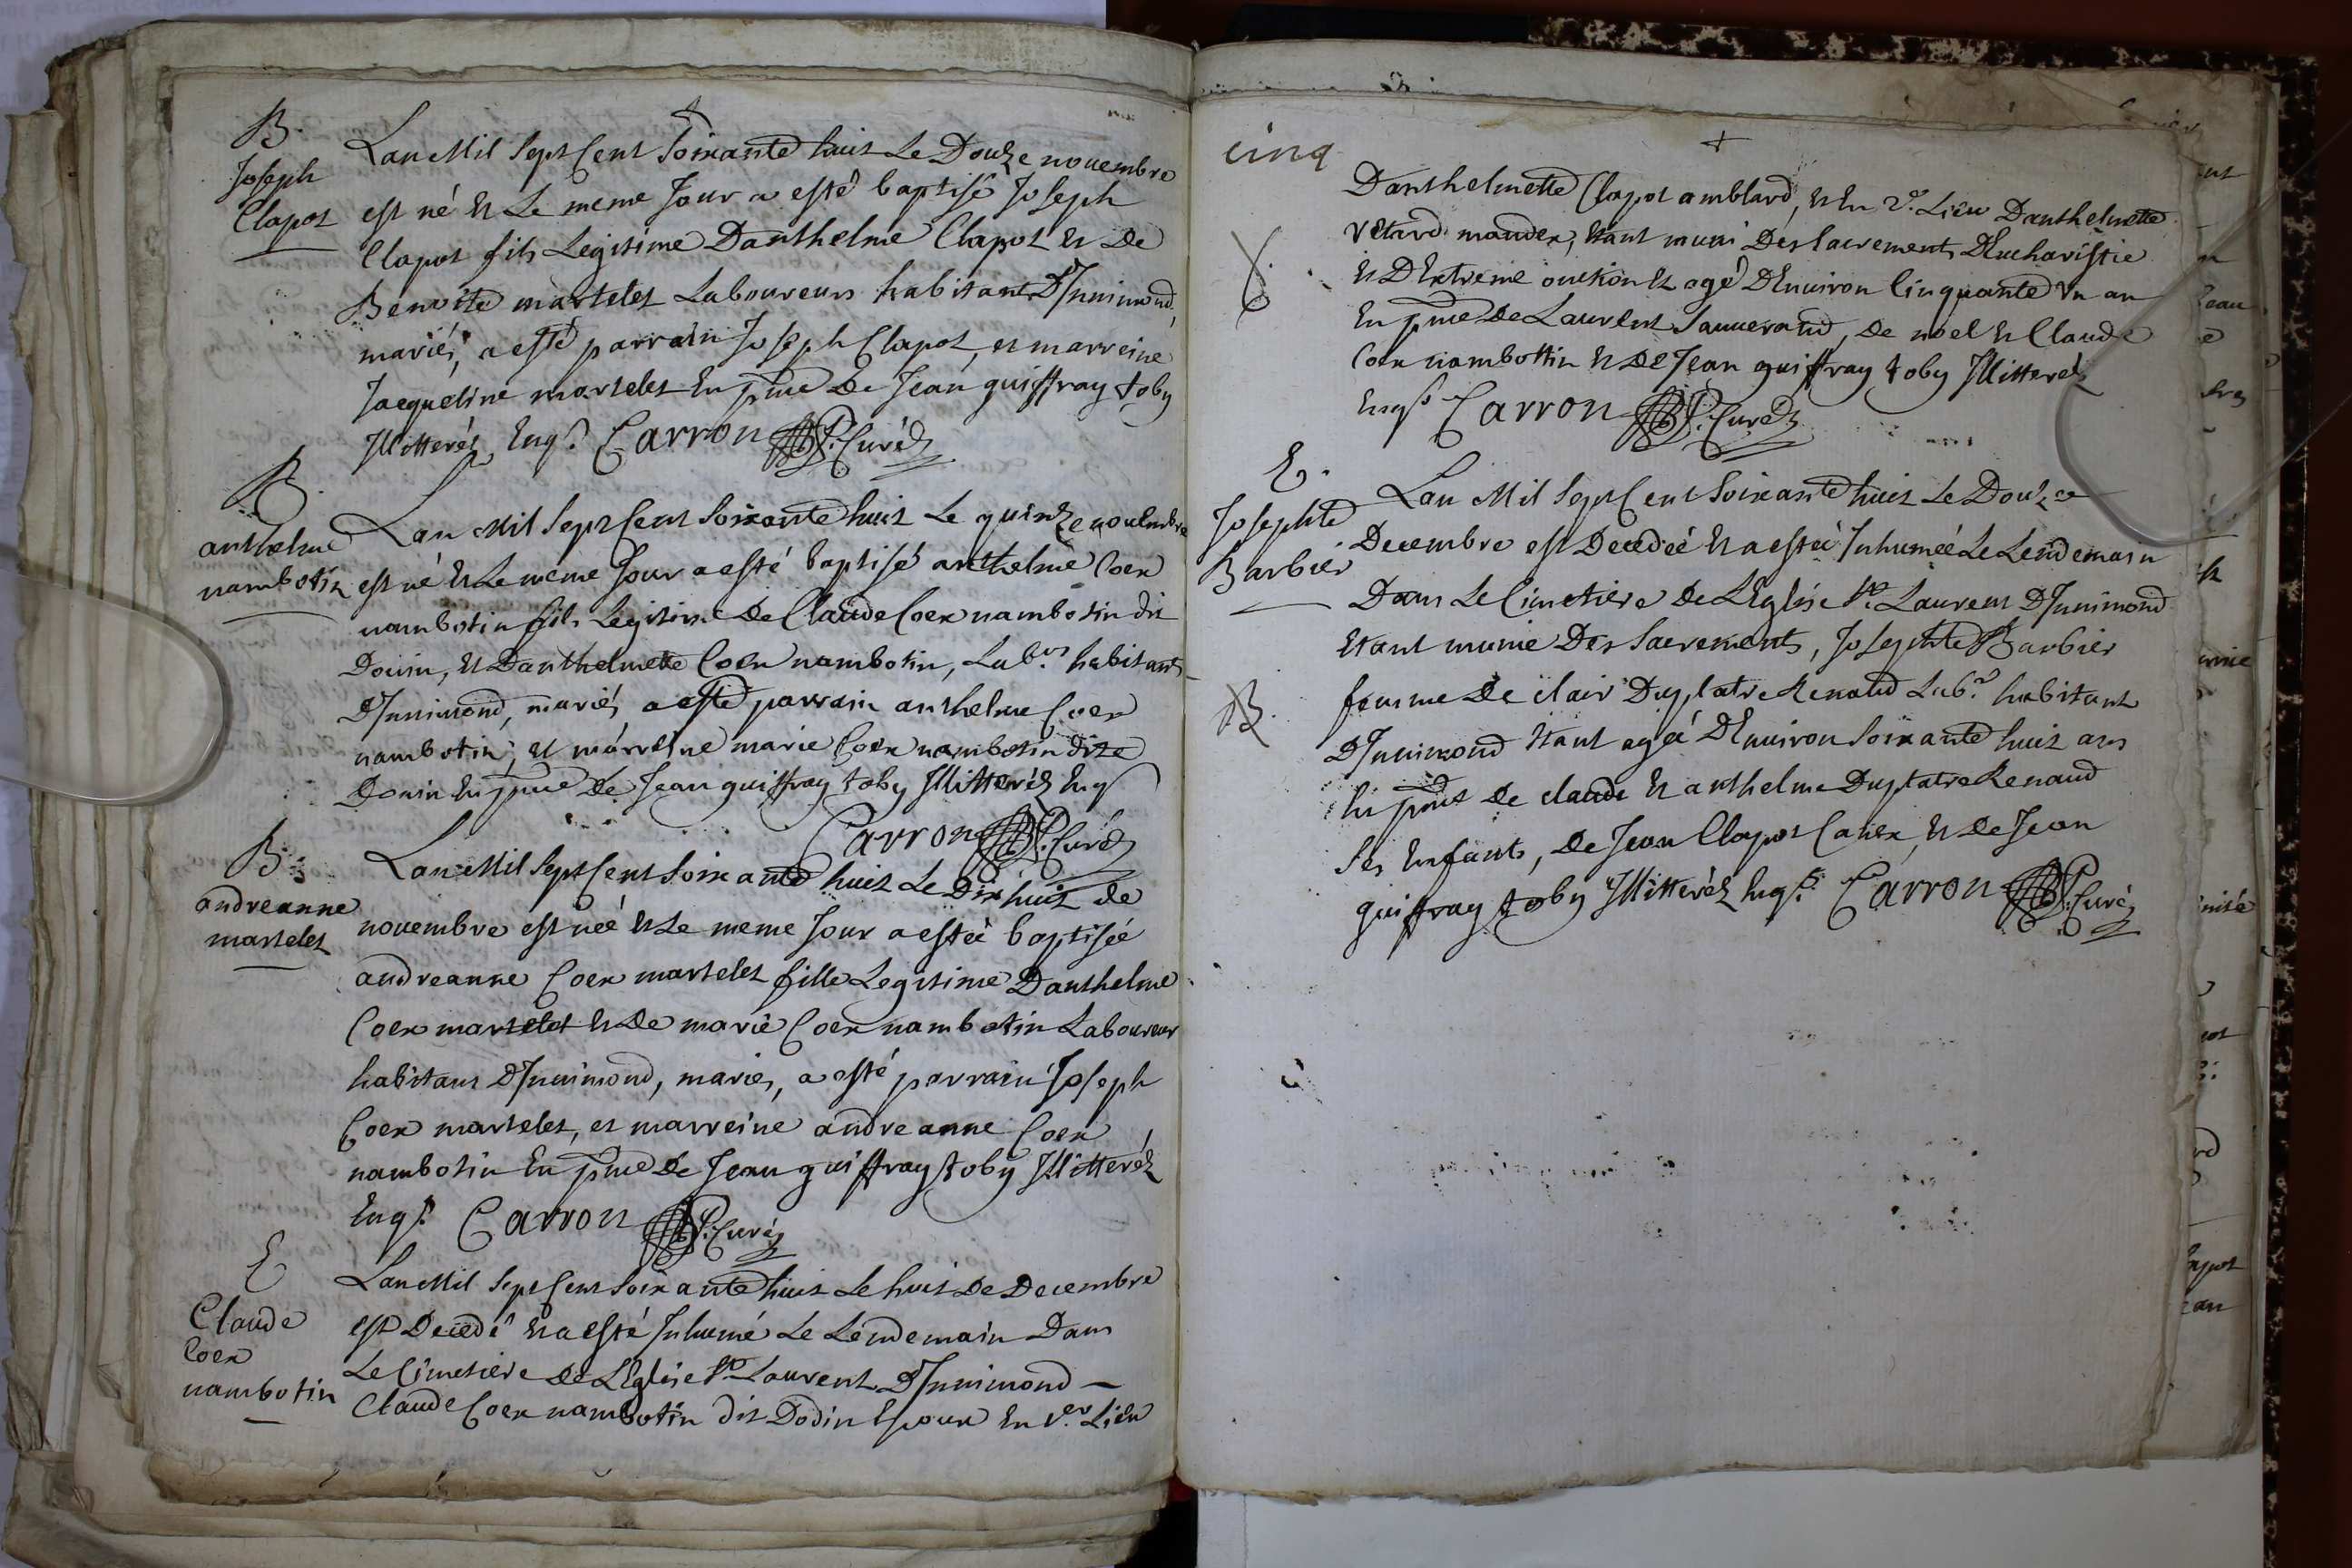 B.
Joseph
Clapot
Lan Mil Sept Cent Soixante huit Le Douze novembre
est né et Le meme Jour a esté baptisé Joseph
Clapot fils Legitime Danthelme Clapot et De
Benoite martelet Laboureurs habitants DInnimond,
mariés, a esté parrain Joseph Clapot, et marreine
Jacqueline martelet En pnce De Jean guiffray toby
Illitteréz Enqs. Carron P. Curéz
B.
anthelme
nambotin
Lan Mil Sept Cent Soixante huit Le quinze novembre
est né et Le meme Jour a esté baptisé anthelme Coex
nambotin fils Legitime De Claude Coex nambotin dit
Donin, et Danthelmette Coex nambotin, Labrs habitants
DInnimond, mariés, a esté parrain anthelme Coex
nambotin, et marreine marie Coex nambotin dite
Donin En pnce de Jean guiffray toby Illitteréz Enqs
Carron P. Curéz
B.
andreanne
martelet
Lan Mil Sept Cent Soixante huit Le Dix huit de
novembre est née et Le meme Jour a estée baptisée
andreanne Coex martelet fille Legitime Danthelme
Coex martelet et De marie Coex nambotin Laboureur
habitans DInnimond, mariés, a esté parrain Joseph
Coex martelet, et marreine andreanne Coex
nambotin En pnce de Jean guiffray toby Illitteréz
Enqs. Carron P. Curéz
E
Claude
Coex
nambotin
Lan Mil Sept Cent Soixante huit Le huit De Decembre
est Decedé et a esté Inhumé Le Lendemain Dans
Le Cimetiere De LEglise St Laurent DInnimond
Claude Coex nambotin dit Dodin Epoux En 1er Lieu
cinq
Danthelmette Clapot amblard, et En 2e. Lieu Danthelmette
vetard mander, Etant muni Des Sacrements DEucharistie
et DExtreme onction et agé DEnviron Cinquante un an
En pnce De Laurent Sauverand, De noel et Claude
Coex nambottin et De Jean guiffray toby Illitterez
Enqs Carron P. Curéz
E.
Josephte
Barbier
Lan Mil Sept Cent Soixante huit Le Douze
Decembre est Decedée et a estée Inhumée Le Lendemain
Dans Le Cimetiere De LEglise St. Laurent DInnimond
Etant munie Des Sacrements, Josephte Barbier
femme De clair Duplatre Renaud Labr. habitant
DInnimond Etant agée DEnviron Soixante huit ans
En pnce de claude et anthelme Duplatre Renaud
Ses Enfants, De Jean Clapot, et De Jean
guiffray toby Illitteréz Enqs. Carron P. Curéz
B.